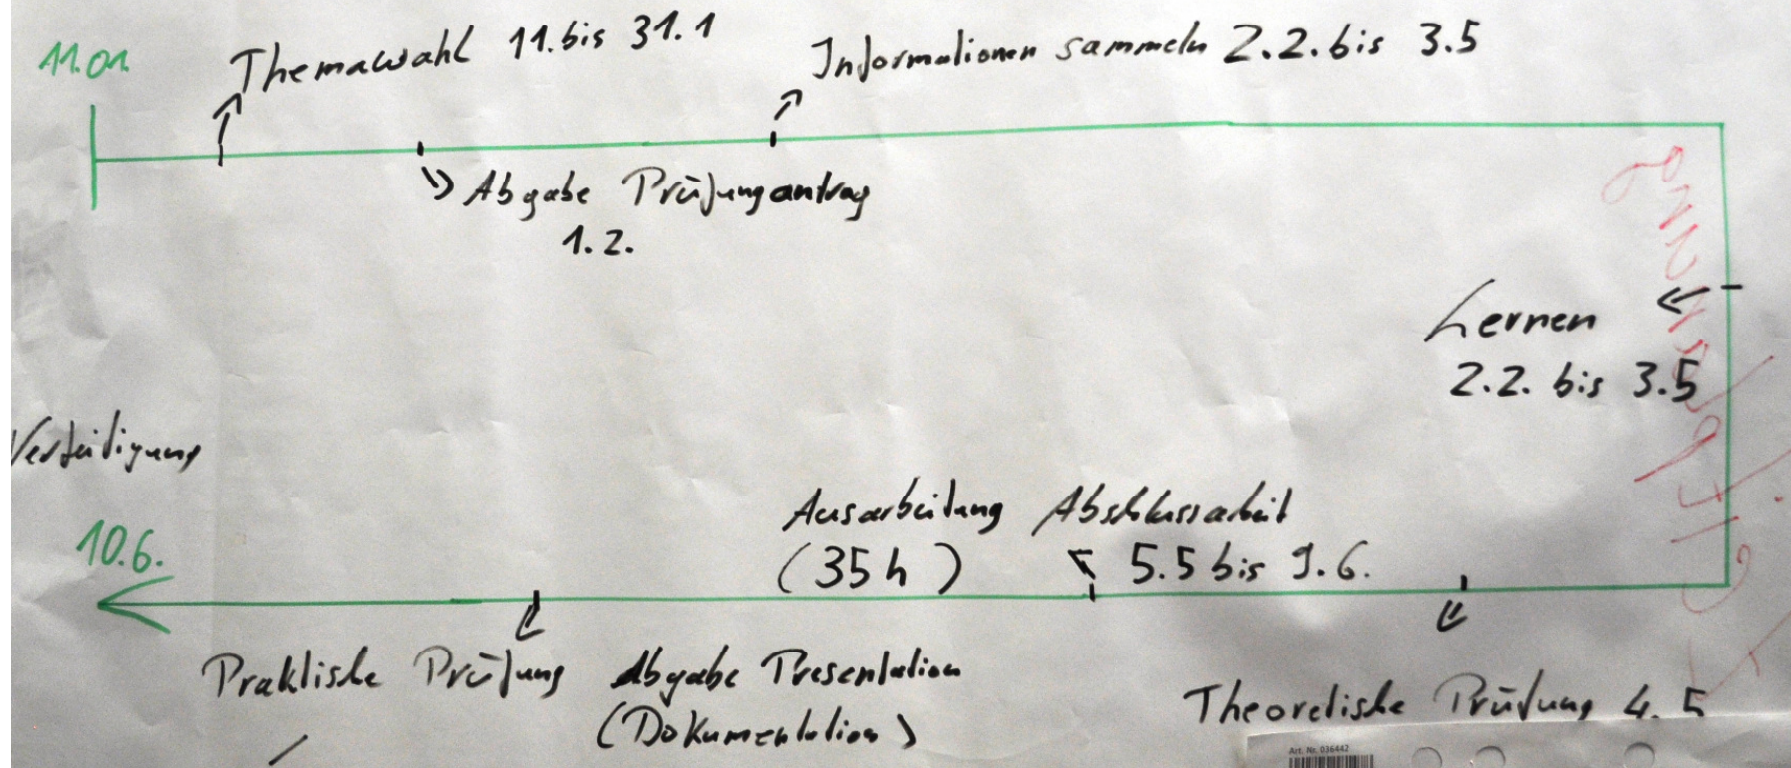 11.01.
Themawahl 11. bis 31.1
Informationen sammeln 2.2. bis 3.5
Abgabe Prüfungantrag
1.2.
Lernen
2.2. bis 3.5
Verteidigung
10.6.
Ausarbeitung Abschlussarbeit
(35h) 5.5 bis 9.6.
Praktische Prüfung Abgabe Presentation
(Dokumentation)
Theoretische Prüfung 4.5
Art. Nr. 036442